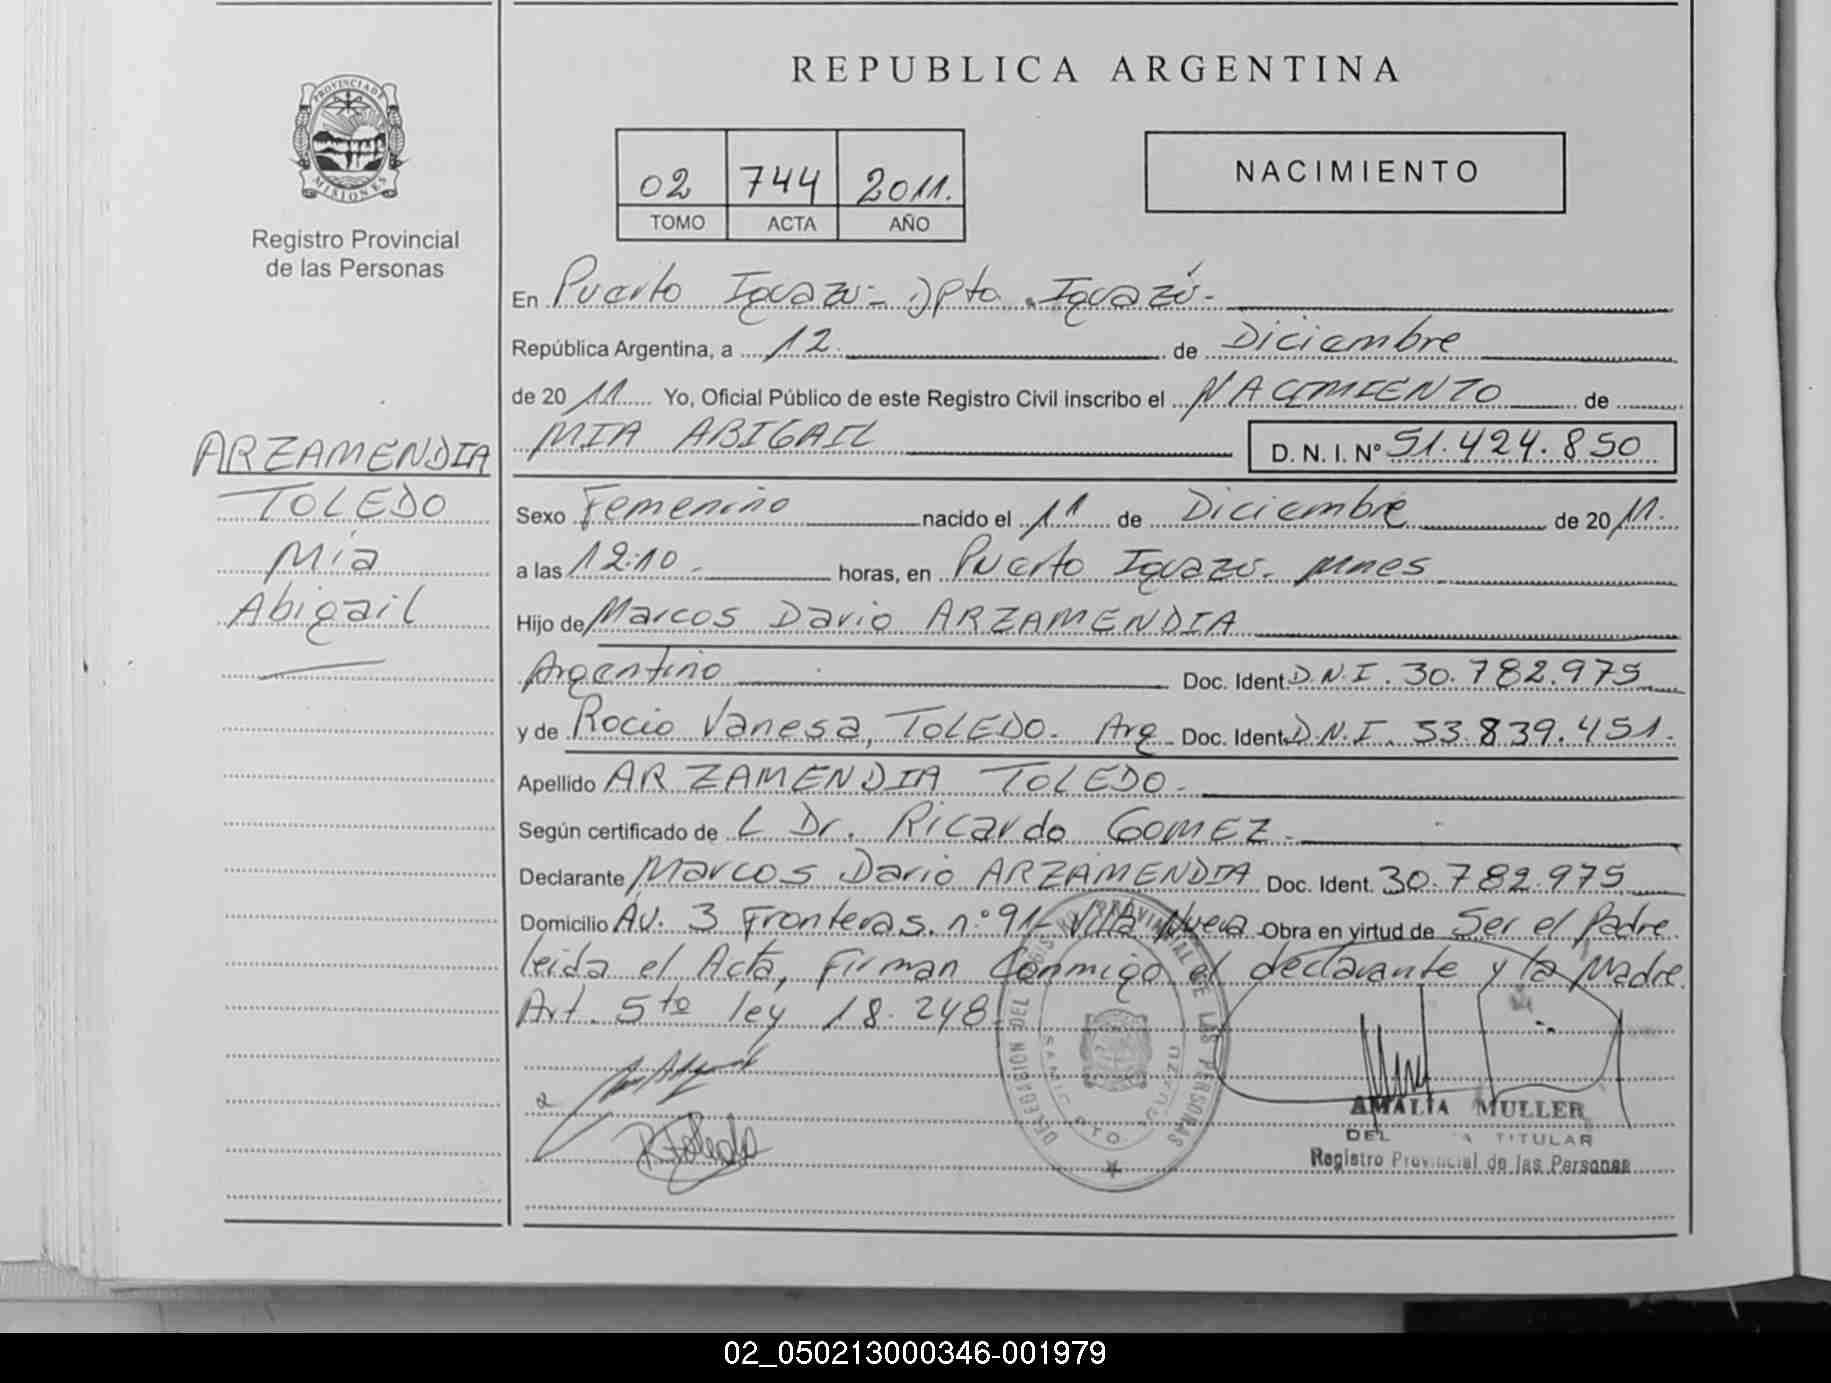 REPUBLICA ARGENTINA
PROVINCIA DE
MISIONES
Registro Provincial
de las Personas
02 744 2011.
TOMO ACTA AÑO
NACIMIENTO
En Puerto Iguazu - Dpto. Iguazú -
República Argentina, a 12 de Diciembre
de 20 11 Yo, Oficial Público de este Registro Civil inscribo el NACIMIENTO de
MIA ABIGAIL D. N. I. Nº 51.424.850
ARZAMENDIA
TOLEDO
Mia
Abigail
Sexo Femenino nacido el 11 de Diciembre de 20 11.
a las 12:10 - horas, en Puerto Iguazu - Mnes
Hijo de Marcos Dario ARZAMENDIA
Argentino Doc. Ident. D.N.I. 30.782.975
y de Rocio Vanesa, TOLEDO - Arg - Doc. Ident. D.N.I. 33.839.451.
Apellido ARZAMENDIA TOLEDO -
Según certificado de L Dr. Ricardo GOMEZ -
Declarante Marcos Dario ARZAMENDIA Doc. Ident. 30.782.975
Domicilio Av. 3 Fronteras. n:º 91 - Villa Nueva Obra en virtud de Ser el Padre
leida el Acta, Firman Conmigo el declarante y la Madre.
Art. 5to ley 18.248.
R Toledo
DELEGACION DEL REGIS PROVINCIAL DE LAS PERSONAS
PTO. IGUAZU
AMALIA MULLER
DEL A TITULAR
Registro Provincial de las Personas
02_050213000346-001979